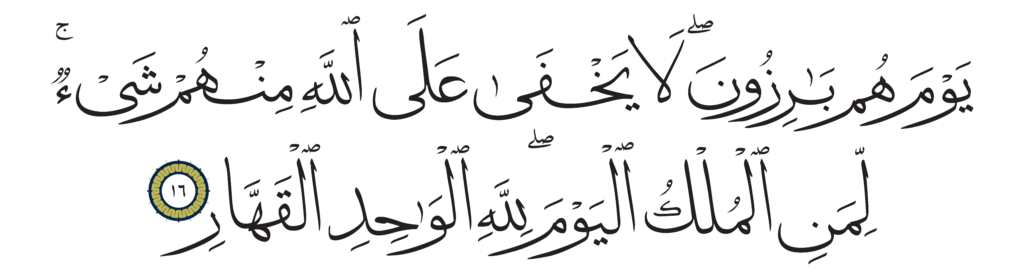 يَوْمَ هُم بَٰرِزُونَ ۖ لَا يَخْفَىٰ عَلَى ٱللَّهِ مِنْهُمْ شَىْءٌ ۚ
لِّمَنِ ٱلْمُلْكُ ٱلْيَوْمَ ۖ لِلَّهِ ٱلْوَٰحِدِ ٱلْقَهَّارِ ١٦